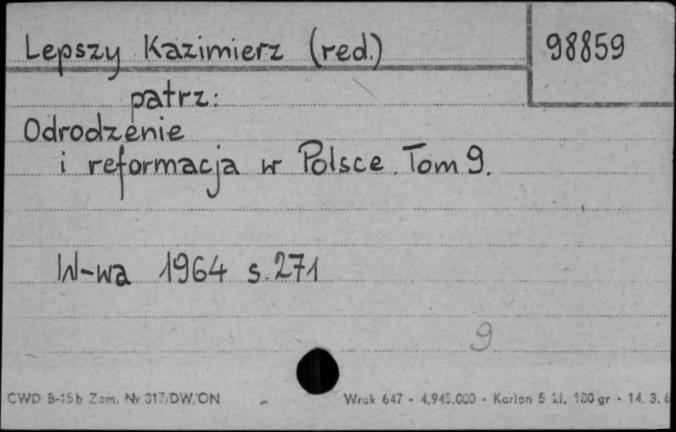 Lepszy Kazimierz (red.)
98859
patrz:
Odrodzenie
i reformacja w Polsce. Tom 9.
W-wa 1964 s. 271
9
CWD B-15b Zam. Nr 317/DW/ON
647 - 4.945.000 - Karton 5 kl. 180 gr - 14. 3. 6